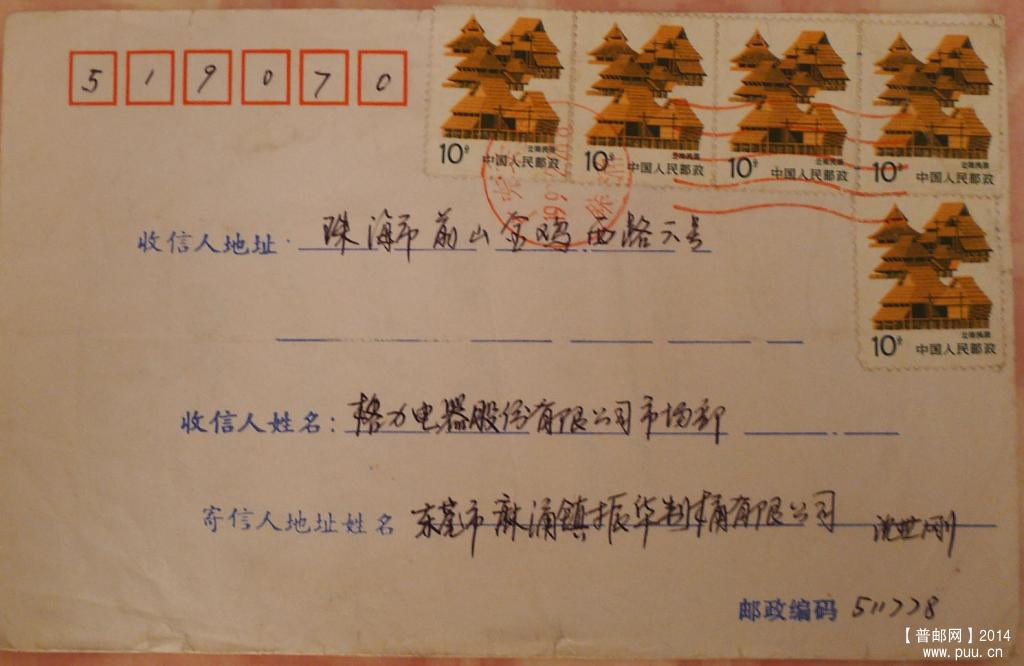 519070
10分 云南民居
中国人民邮政
10分 云南民居
中国人民邮政
10分 云南民居
中国人民邮政
10分 云南民居
中国人民邮政
收信人地址 珠海市前山金鸡西路六号
10分 云南民居
中国人民邮政
收信人姓名: 格力电器股份有限公司市场部
寄信人地址姓名 东莞市麻涌镇振华制桶有限公司 沈世刚
邮政编码 511778
【普邮网】2014
www.puu.cn